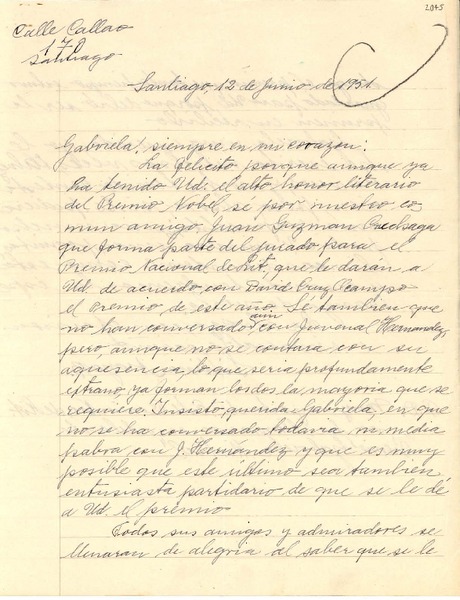 2045
Calle Callao
170
Santiago
Santiago, 12 de Junio de 1951.
Gabriela! siempre en mi corazón:
La felicito porque aunque ya
ha tenido Ud. el alto honor literario
del Premio Nobel, sé por nuestro co-
mun amigo, Juan Guzman Cruchaga
que forma parte del jurado para el
Premio Nacional de Lit, que le darán a
Ud. de acuerdo con David Cruz Ocampo
el premio de este año. Sé tambien que
no han conversado aún con Juvenal Hernandez,
pero, aunque no se contara con su
aquesencia, lo que seria profundamente
extraño, ya forman los dos la mayoria que se
requiere. Insisto, querida Gabriela, en que
no se ha conversado todavia ni media
pabra con J. Hernandez y que es muy
posible que este ultimo sea tambien
entusiasta partidario de que se le dé
a Ud. el premio.
Todos sus amigos y admiradores se
llenaran de alegria al saber que se le